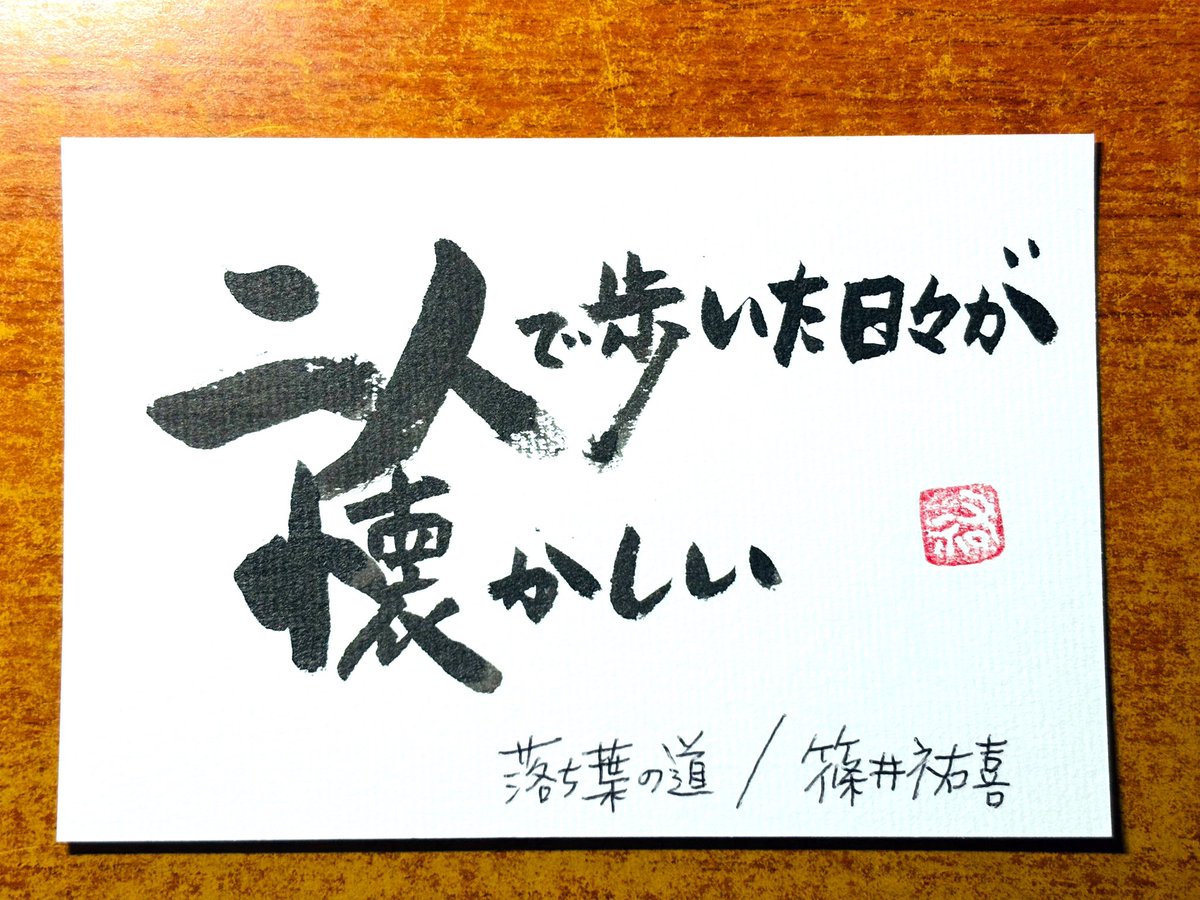 二人で歩いた日々が
懐かしい
落ち葉の道 / 篠井祐喜